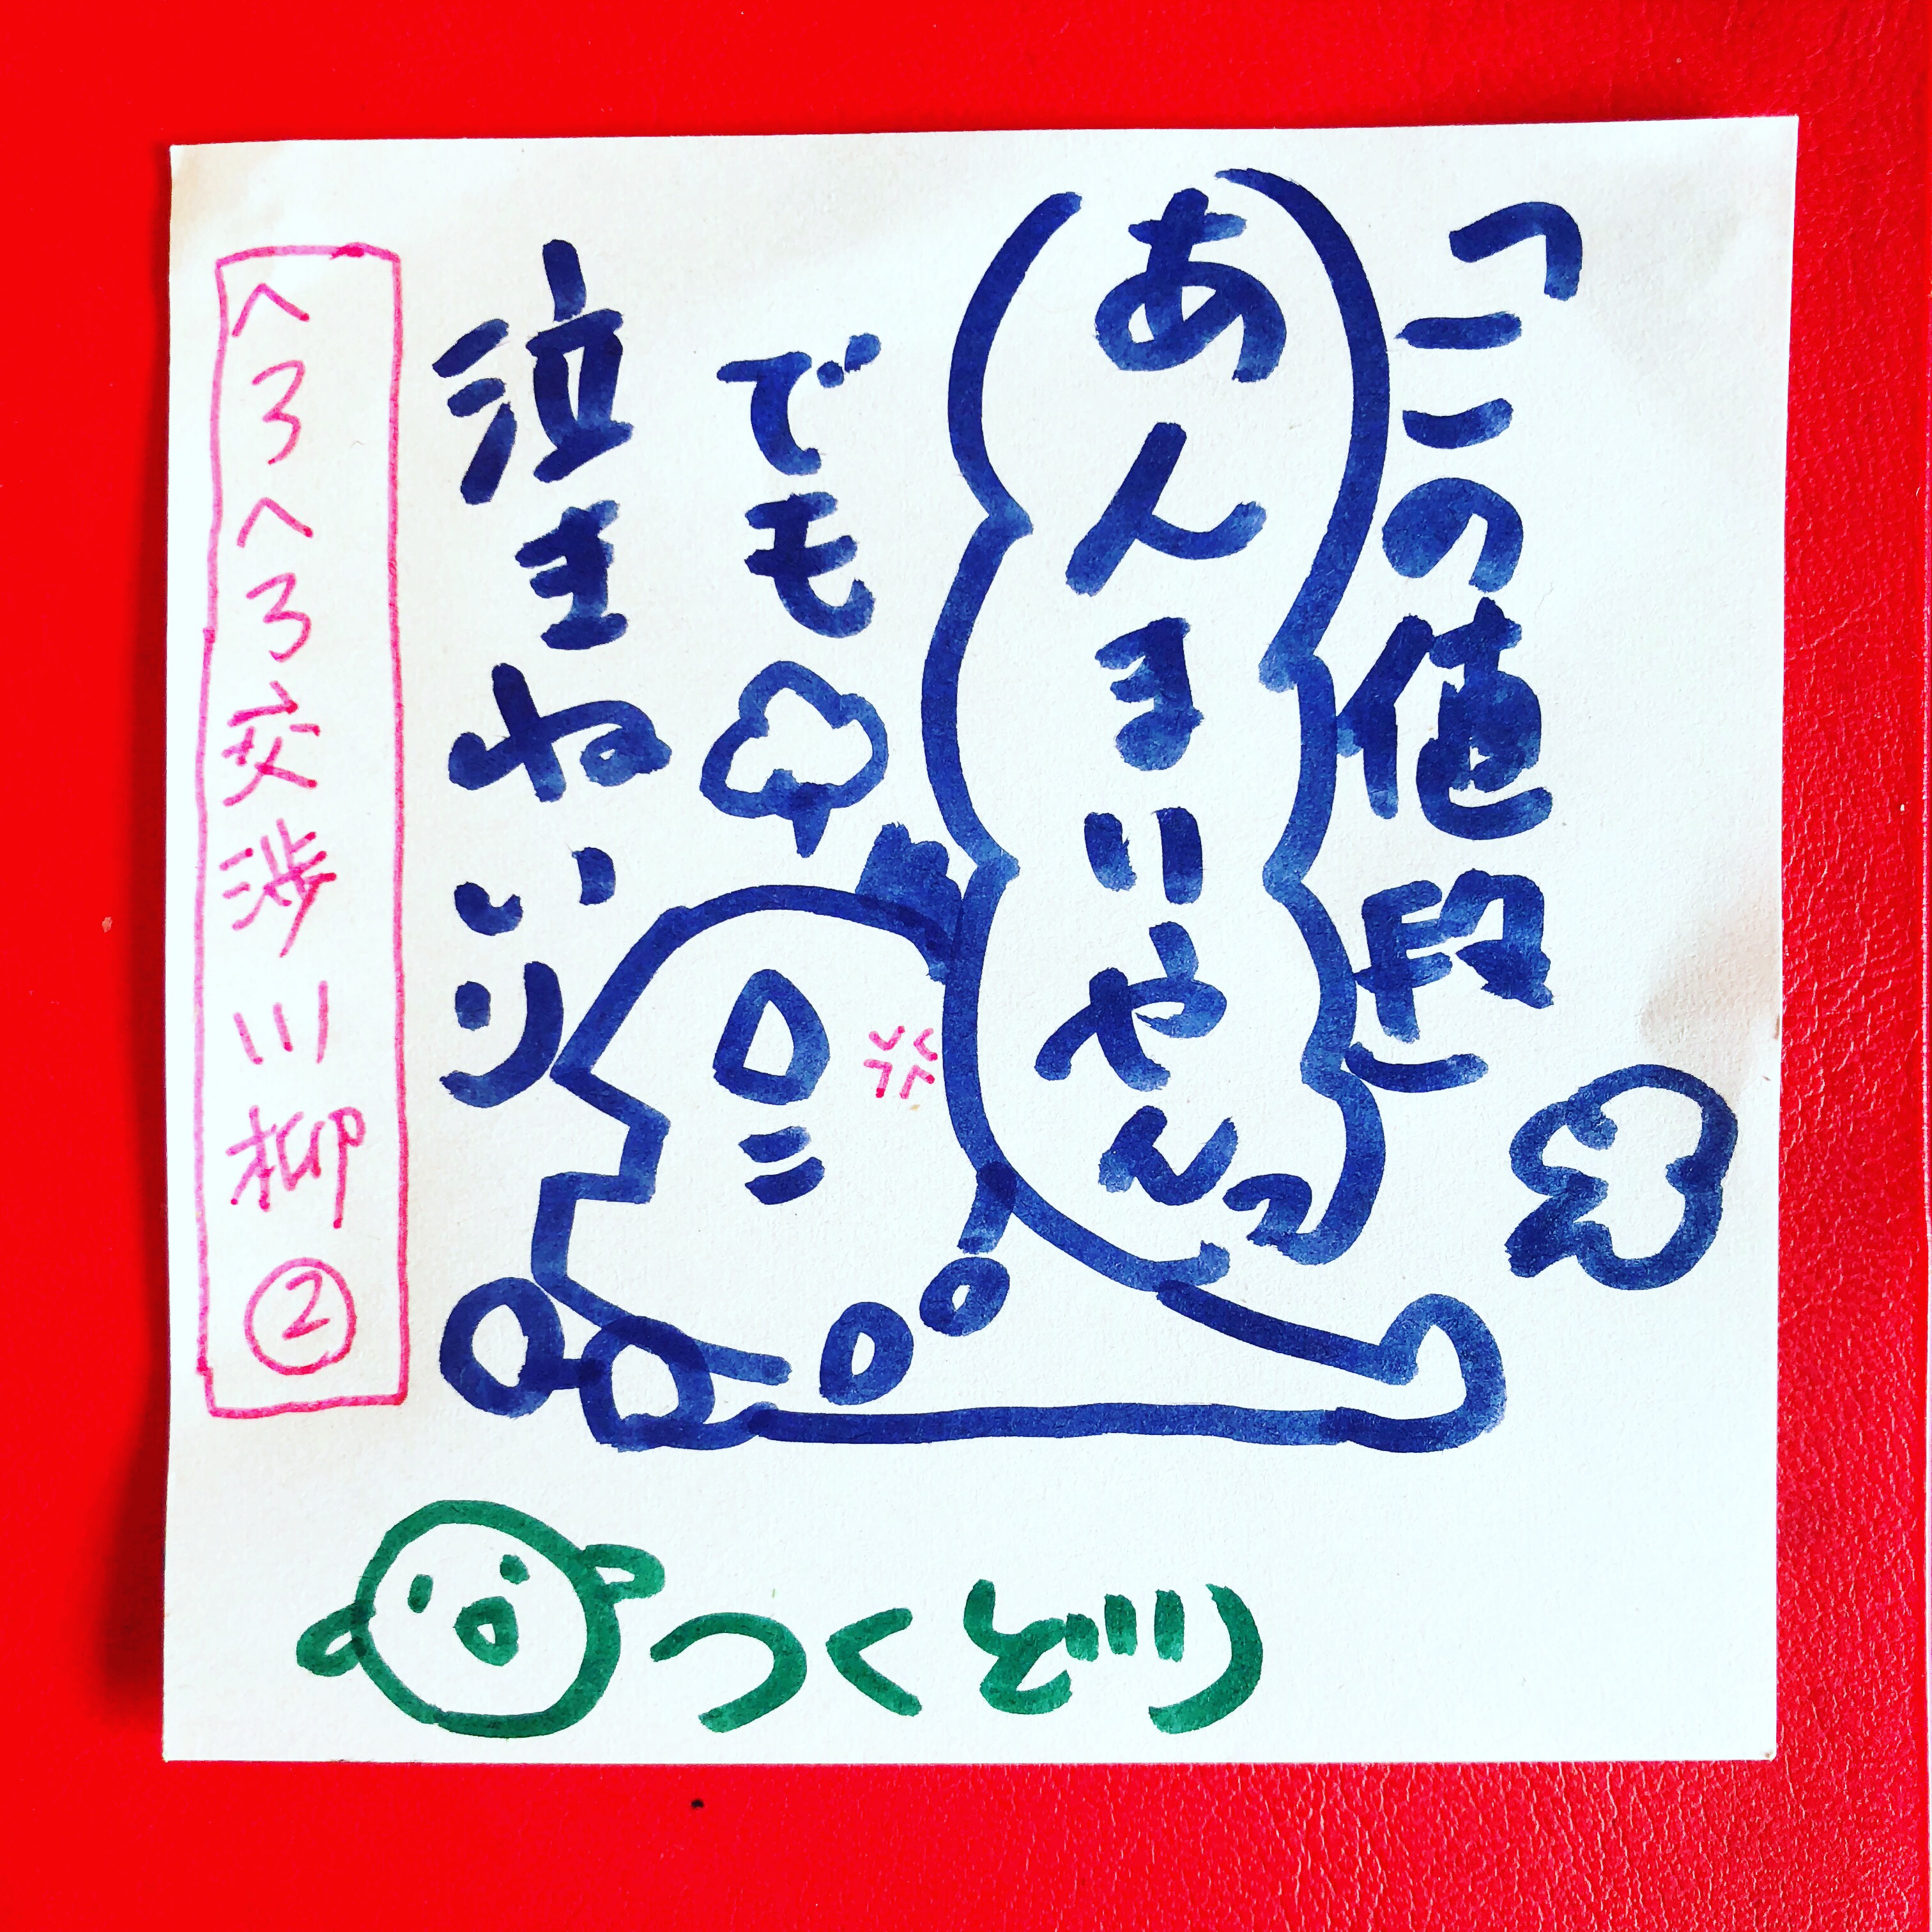 「この値段」
あんまりやんっ
でも
泣きねいり
へろへろ交渉川柳②
つくどり